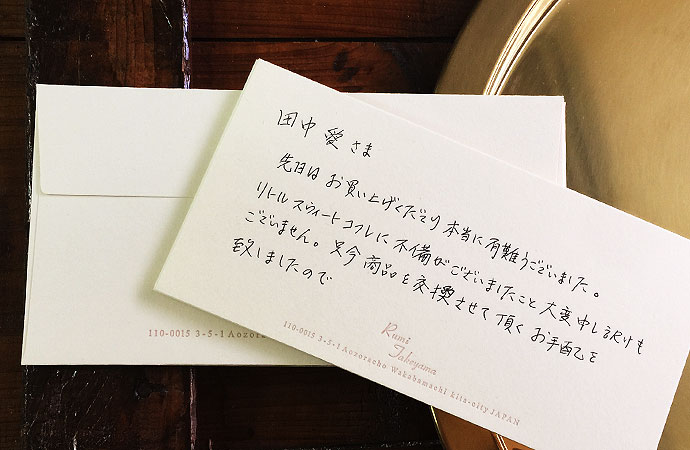 田中 愛さま
先日は お買い上げくださり 本当に有難うございました。
リトルスウィートコフレに 不備がございましたこと 大変申し訳けも
ございません。只今 商品を交換させて頂く お手配を
致しましたので
Rumi
Takeyama
110-0015 3-5-1 Aozoracho Wakabamachi kita-city JAPAN
110-0015 3-5-1 Aozora